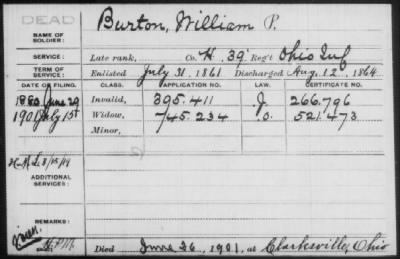 DEAD
NAME OF SOLDIER: Burton, William P.
SERVICE: Late rank, Co. H. 39" Reg't Ohio Inf
TERM OF SERVICE: Enlisted July 31 1861 Discharged Aug. 12, 1864
DATE OF FILING. CLASS. APPLICATION NO. LAW. CERTIFICATE NO.
1880 June 29 Invalid, 395.411 J. 266.796
1901 July 15t Widow, 745.234 521.473
Minor,
ADDITIONAL SERVICES:
REMARKS:
Died June 26, 1901, at Clarksville, Ohio